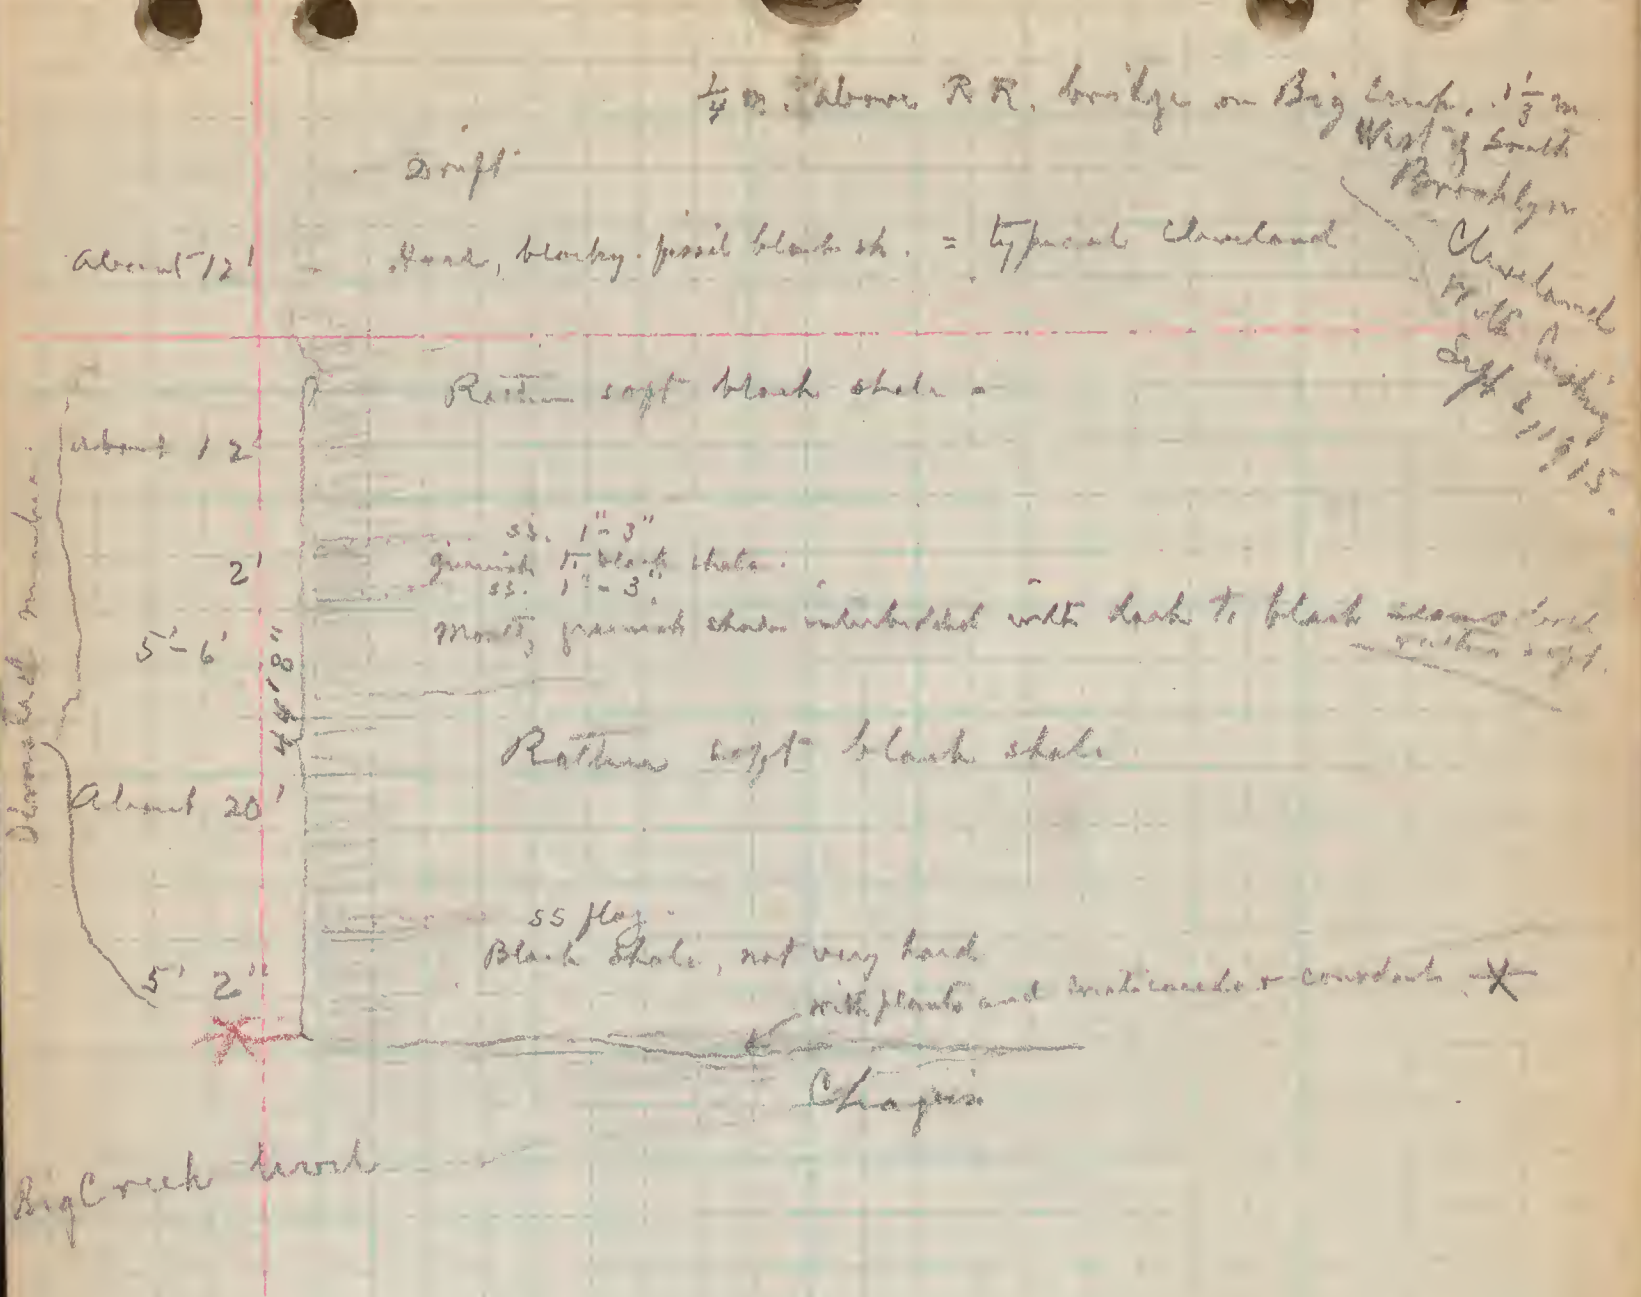 1/4 m. above R R. bridge on Big Creek, 1 1/3 m
West of South
Brooklyn
Cleveland
with Cushing
Sept 2, 1915.
Drift
About 12' Hard, blocky, fissil black sh. = typical Cleveland
Rather soft black shale =
About 12'
ss. 1"- 3"
2' greenish to black shale.
ss. 1"- 3"
5'- 6' Mostly greenish shale interbedded with dark to black
rather soft.
44' 8"
Olmsted member.
Rather soft black shale
About 20'
ss flag.
5' 2" Black Shale, not very hard
with plants and & conodonts X
Chagrin
Big Creek level